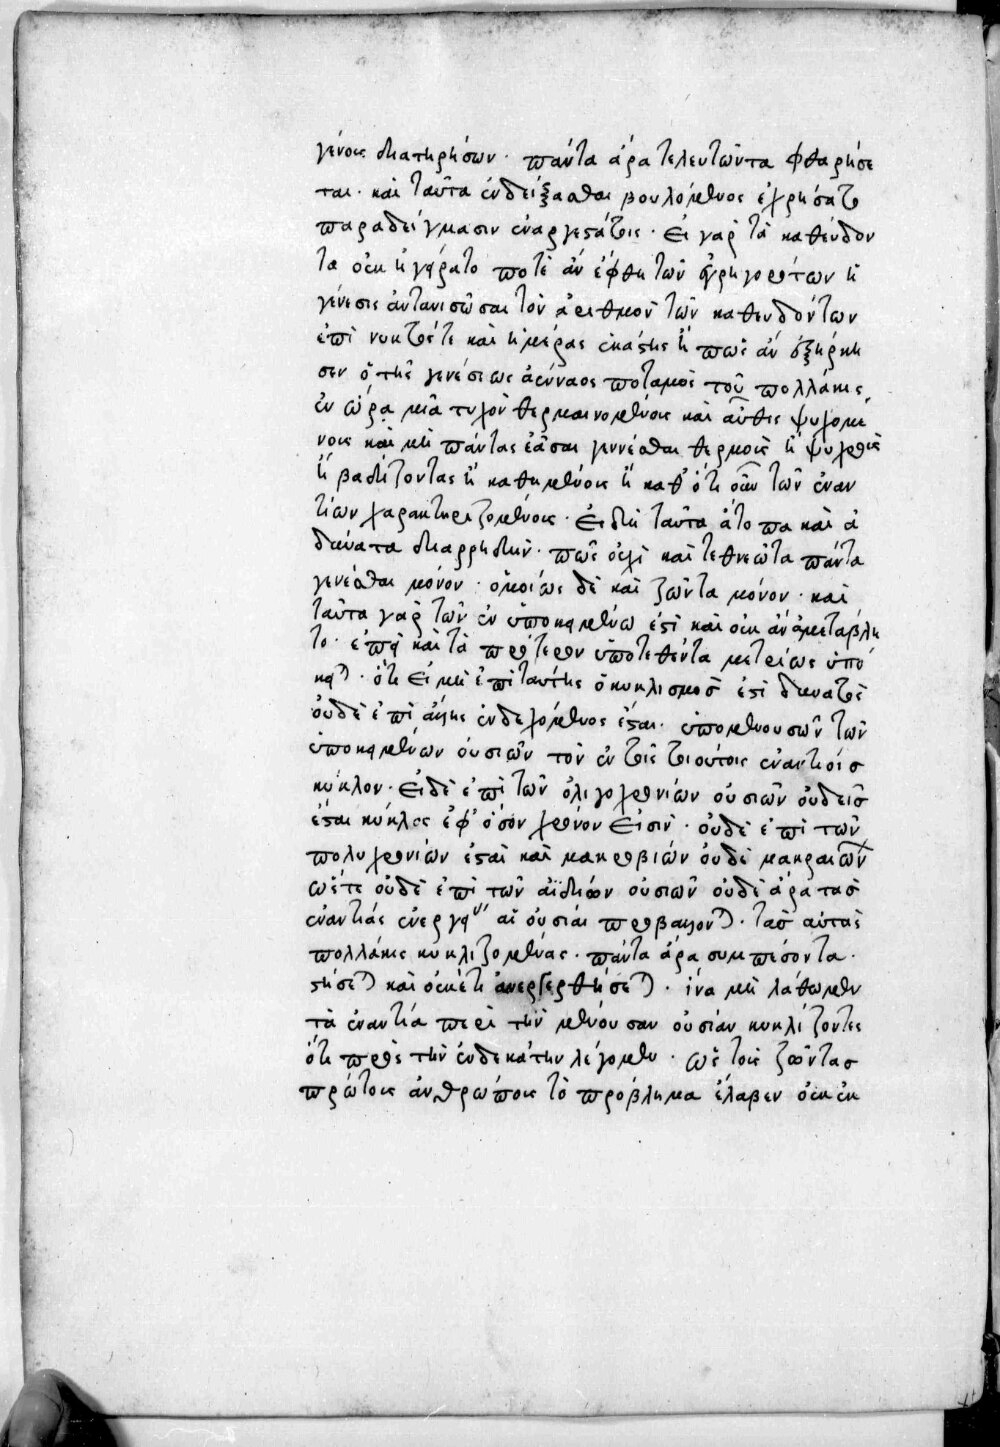 γένους διατηρήσων. πάντα ἄρα τελευτῶντα φθαρήσε
ται. καὶ ταῦτα ἐνδείξασθαι βουλόμενος ἐχρήσατο
παραδείγμασιν ἐναργεστάτοις. Εἰ γὰρ τὰ καθεύδον
τα οὐκ ἠγείρατο ποτὲ ἂν ἐφθη τῶν ἐγρηγορότων ἡ
γένεσις ἀντανισῶσαι τὸν ἀριθμὸν τῶν καθευδόντων
ἐπὶ νυκτός τε καὶ ἡμέρας ἑκάστης ἢ πῶς ἂν ἐξήρκη
σεν ὁ τῆς γενέσεως ἀένναος ποταμὸς τοῦ πολλάκις
ἐν ὥρα μιᾶ τυχὸν θερμαινομένους καὶ αὖθις ψυχομέ
νους καὶ μὴ πάντας ἐᾶσαι γενέσθαι θερμοὺς ἢ ψυχροὺς
ἢ βαδίζοντας ἢ καθημένους ἢ καθ' ὅτι οὖν τῶν ἐναν
τίων χαρακτηριζομένους. Εἰ δὴ ταῦτα ἄτοπα καὶ ἀ
δύνατα διαρρήδην. πῶς οὐχὶ καὶ τεθνεῶτα πάντα
γενέσθαι μόνον. ὁμοίως δὲ καὶ ζῶντα μόνον. καὶ
ταῦτα γὰρ τῶν ἐν ὑποκειμένω ἐστὶ καὶ οὐκ ἀναμεταβλη
το. ἐπεὶ καὶ τὰ πρότερον ὑποτεθέντα μετρίως ὑπό
κειται. ὅτι εἰ μὴ ἐπὶ ταύτης ὁ κυκλισμὸς ἐστὶ δυνατὸς
οὐδὲ ἐπὶ ἄλλης ἐνδεχόμενος ἔσται. ὑπομενουσῶν τῶν
ὑποκειμένων οὐσιῶν τὸν ἐν τοῖς τοιούτοις ἐναντίοις
κύκλον. Εἰ δὲ ἐπὶ τῶν ὀλιγοχρονίων οὐσιῶν οὐδεὶς
ἔσται κύκλος ἐφ' ὅσον χρόνον εἰσίν. οὐδὲ ἐπὶ τῶν
πολυχρονίων ἔσται καὶ μακροβιῶν οὐδὲ μακραιῶν
ὥστε οὐδὲ ἐπὶ τῶν ἀϊδίων οὐσιῶν οὐδὲ ἄρα τὰς
ἐναντίας ἐνεργείας αἱ οὐσίαι προβάλλονται. τὰς αὐτὰς
πολλάκις κυκλιζομένας. πάντα ἄρα συμπεσόντα.
στήσεται καὶ οὐκέτι ἀνεγερθήσεται. ἵνα μὴ λάθωμεν
τὰ ἐναντία περὶ τὴν μένουσαν οὐσίαν κυκλίζοντες
ὅτι πρὸς τὴν ἑνδεκάτην λέγομεν. ὡς τοὺς ζῶντας
πρώτους ἀνθρώπους τὸ πρόβλημα ἔλαβεν οὐκ ἐκ